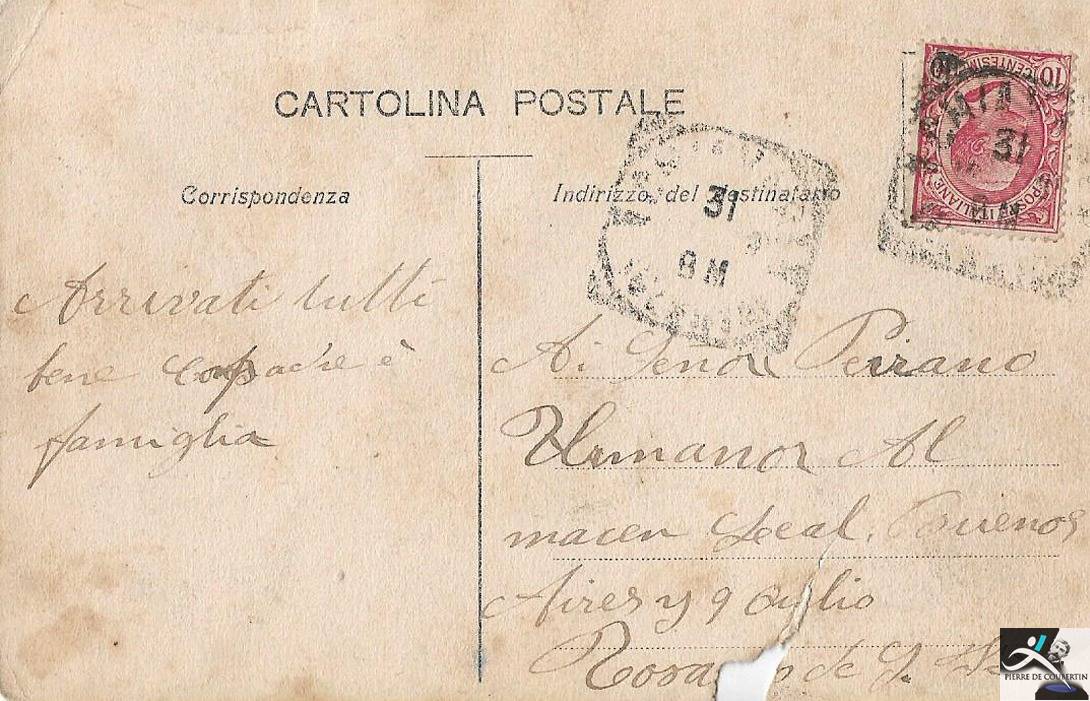 CARTOLINA POSTALE
Corrispondenza
Indirizzo del destinatario
10 CENTESIMI 10
POSTE ITALIANE
31
31
8 M
Arrivati tutti
bene è
famiglia
Ai Señor Peirano
Umanor Al
macen Leal. Buenos
Aires y 9
de
PIERRE DE COUBERTIN